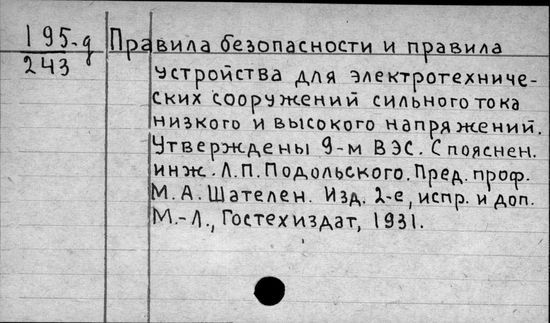 195-д
243
Правила безопасности и правила
устройства для электротехниче-
ских сооружений сильного тока
низкого и высокого напряжений.
Утверждены 9-м ВЭС. С пояснен.
инж. Л.П. Подольского. Пред. проф.
М.А. Шателен. Изд. 2-е, испр. и доп.
М.-Л., Гостехиздат, 1931.